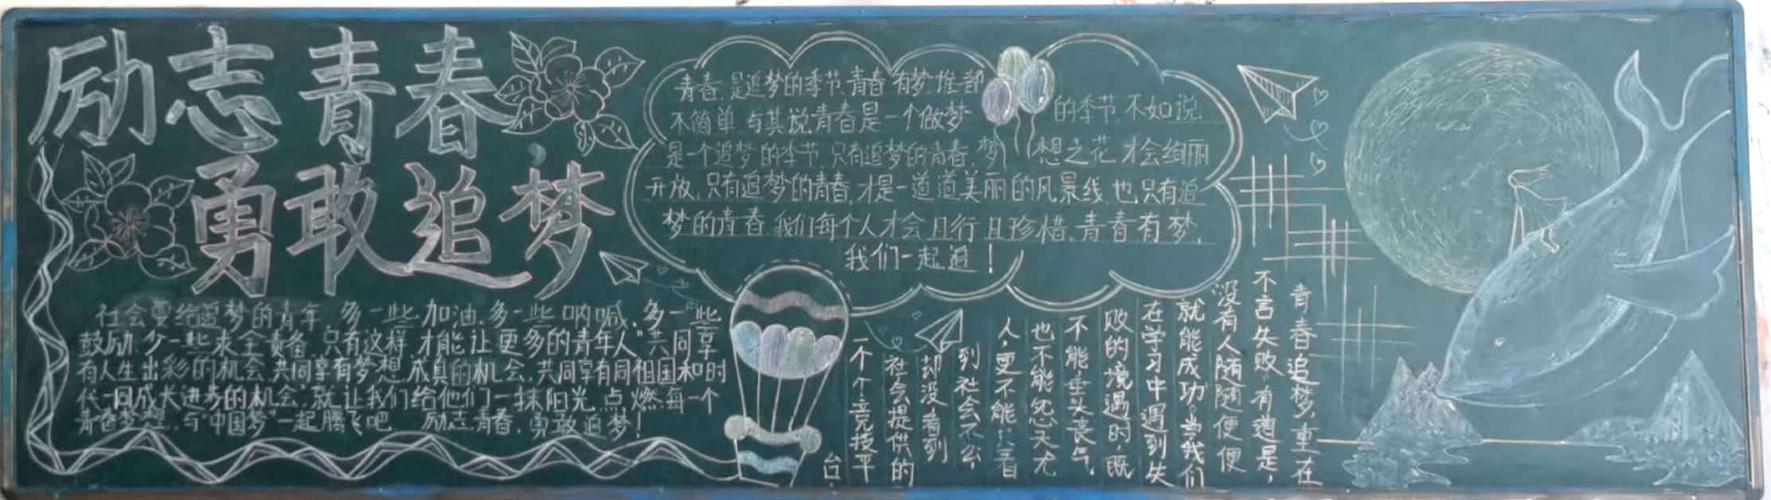 励志青春
勇敢追梦
青春是追梦的季节,青春有梦,谁都
不简单,与其说青春是一个做梦的季节,不如说
是一个追梦的季节.只有追梦的青春,梦想之花才会绚丽
开放,只有追梦的青春,才是一道道美丽的风景线,也只有追
梦的青春,我们每个人才会且行且珍惜,青春有梦,
我们一起追!
社会要给追梦的青年,多一些加油,多一些呐喊,多一些
鼓励,少一些求全责备,只有这样,才能让更多的青年人"共同享
有人生出彩的机会,共同享有梦想成真的机会,共同享有同祖国和时
代一同成长进步的机会",就让我们给他们一抹阳光,点燃每一个
青春梦想,与"中国梦"一起腾飞吧. 励志青春,勇敢追梦!
青春追梦,重在
不言失败,有道是,
没有人随随便便
就能成功,当我们
在学习中遇到失
败的境遇时,既
不能垂头丧气,
也不能怨天尤
人,更不能
到社会不公,
却没看到
社会提供的
一个个竞技平
台.